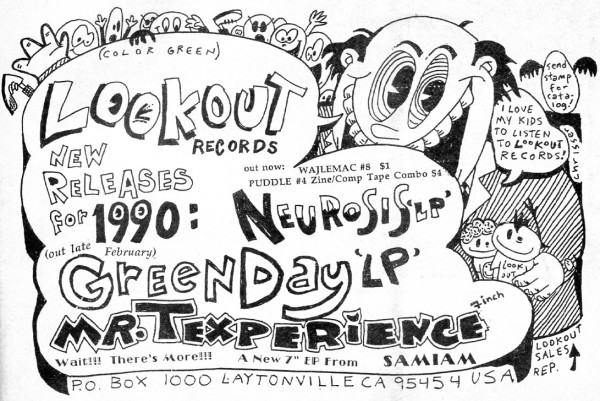 (COLOR GREEN)
LOOKOUT
RECORDS
NEW
RELEASES
for 1990:
out now: WAJLEMAC #8 $1
PUDDLE #4 Zine/Comp Tape Combo $4
NEUROSIS 'LP'
(out late February)
GREEN DAY 'LP'
MR. T EXPERIENCE 7inch
Wait!!! There's More!!! A New 7" EP From SAMIAM
P.O. BOX 1000 LAYTONVILLE CA 95454 USA
send
stamp
for
cata-
log!
I LOVE
MY KIDS
TO LISTEN
TO LOOKOUT
RECORDS!
LOOK
OUT
LOOKOUT
SALES
REP.